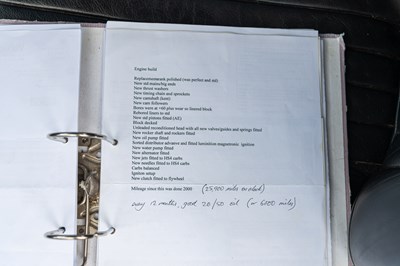 Engine build
Replacementcrank polished (was perfect and std)
New std mains/big ends
New thrust washers
New timing chain and sprockets
New camshaft (fast)
New cam followers
Bores were at +60 plus wear so linered block
Rebored liners to std
New std pistons fitted (AE)
Block decked
Unleaded reconditioned head with all new valves/guides and springs fitted
New rocker shaft and rockers fitted
New oil pump fitted
Sorted distributor advance and fitted lumenition magnetronic ignition
New water pump fitted
New alternator fitted
New jets fitted to HS4 carbs
New needles fitted to HS4 carbs
Carbs balanced
Ignition setup
New clutch fitted to flywheel
Mileage since this was done 2000 (25,900 miles on clock)
every 12 months, good 20/50 oil (or 6000 miles)